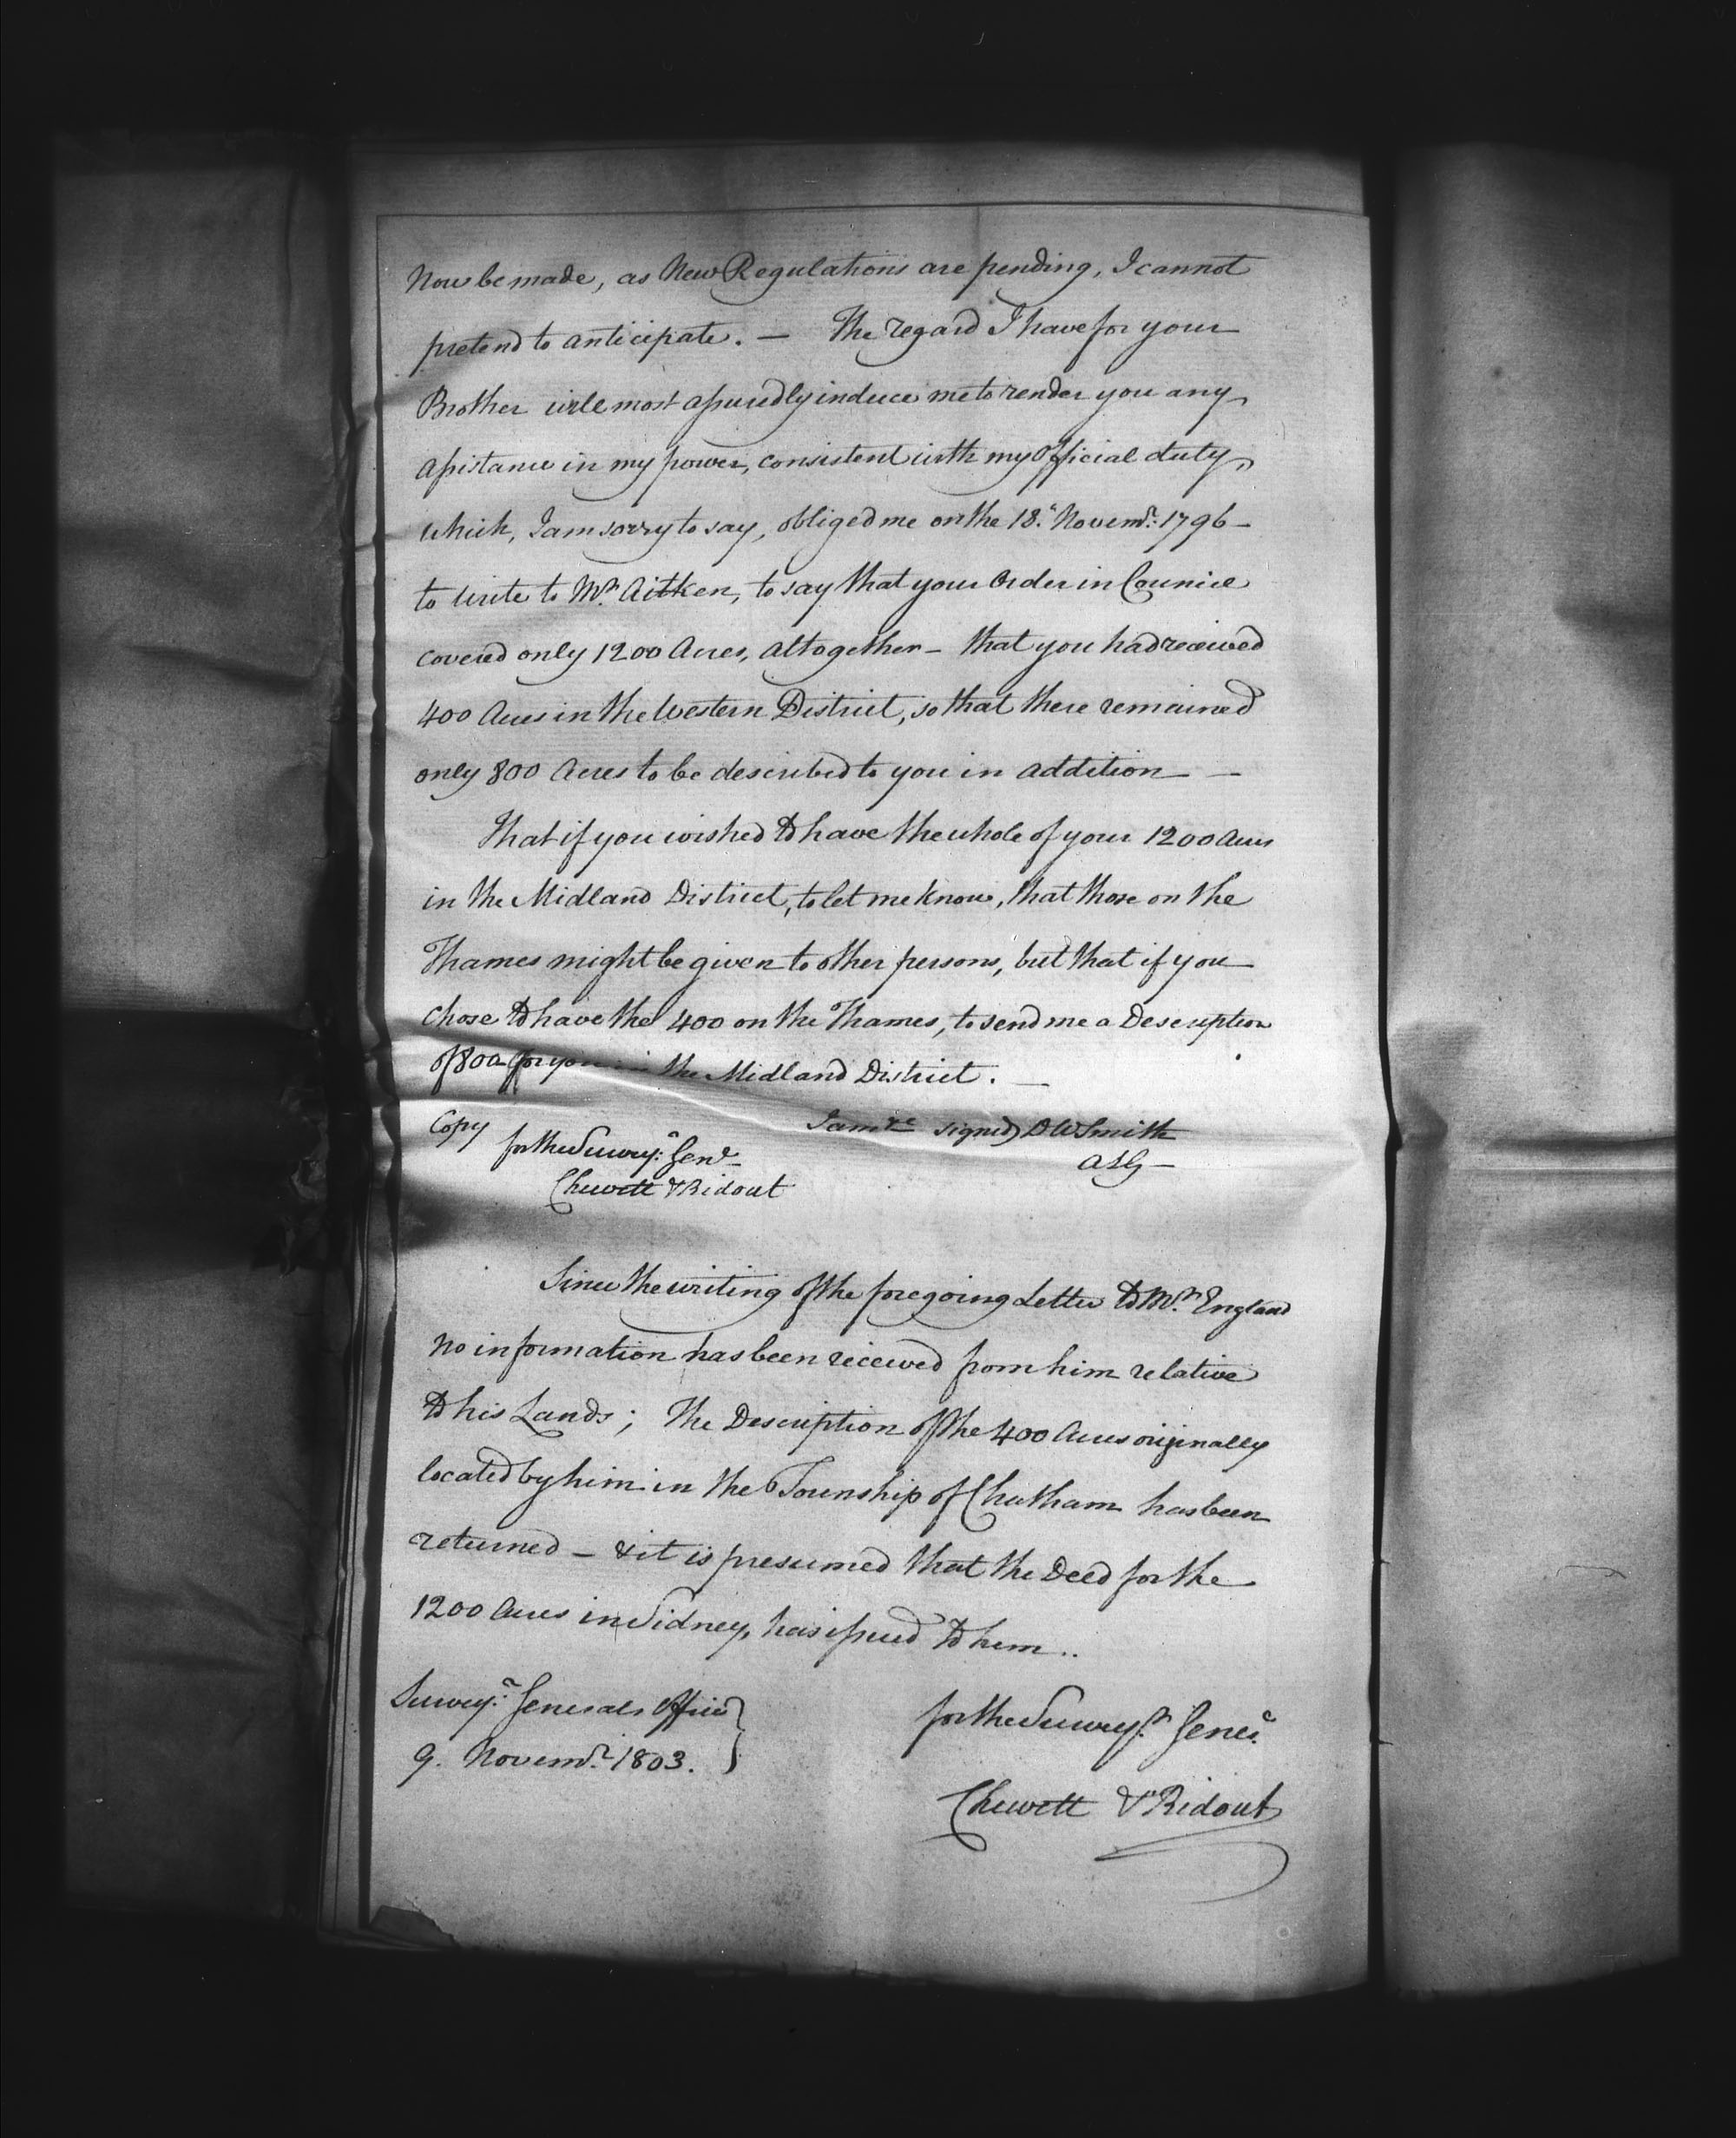 Now be made, as New Regulations are pending, I cannot
pretend to anticipate. — The regard I have for your
Brother will most assuredly induce me to render you any
assistance in my power, consistent with my Official duty,
which, I am sorry to say, obliged me on the 18th Novemr. 1796 —
to write to Mr. Aitken, to say that your Order in Council
covered only 1200 Acres, altogether — that you had received
400 Acres in the Western District, so that there remained
only 800 Acres to be described to you in addition —
That if you wished to have the whole of your 1200 Acres
in the Midland District, to let me know, that those on the
Thames might be given to other persons, but that if you
chose to have the 400 on the Thames, to send me a Description
of 800 for you in the Midland District. —
I am &c signed) D W Smith
ASG —
Copy
for the Surveyr. Genl.
Chewett & Ridout
Since the writing of the foregoing Letter to Mr. England
no information has been received from him relative
to his Lands; The Description of the 400 Acres originally
located by him in the Township of Chatham has been
returned — & it is presumed that the Deed for the
1200 Acres in Sidney, has issued to him..
Surveyr. Generals Office
9. Novemr. 1803.
for the Surveyr. Genel.
Chewett & Ridout